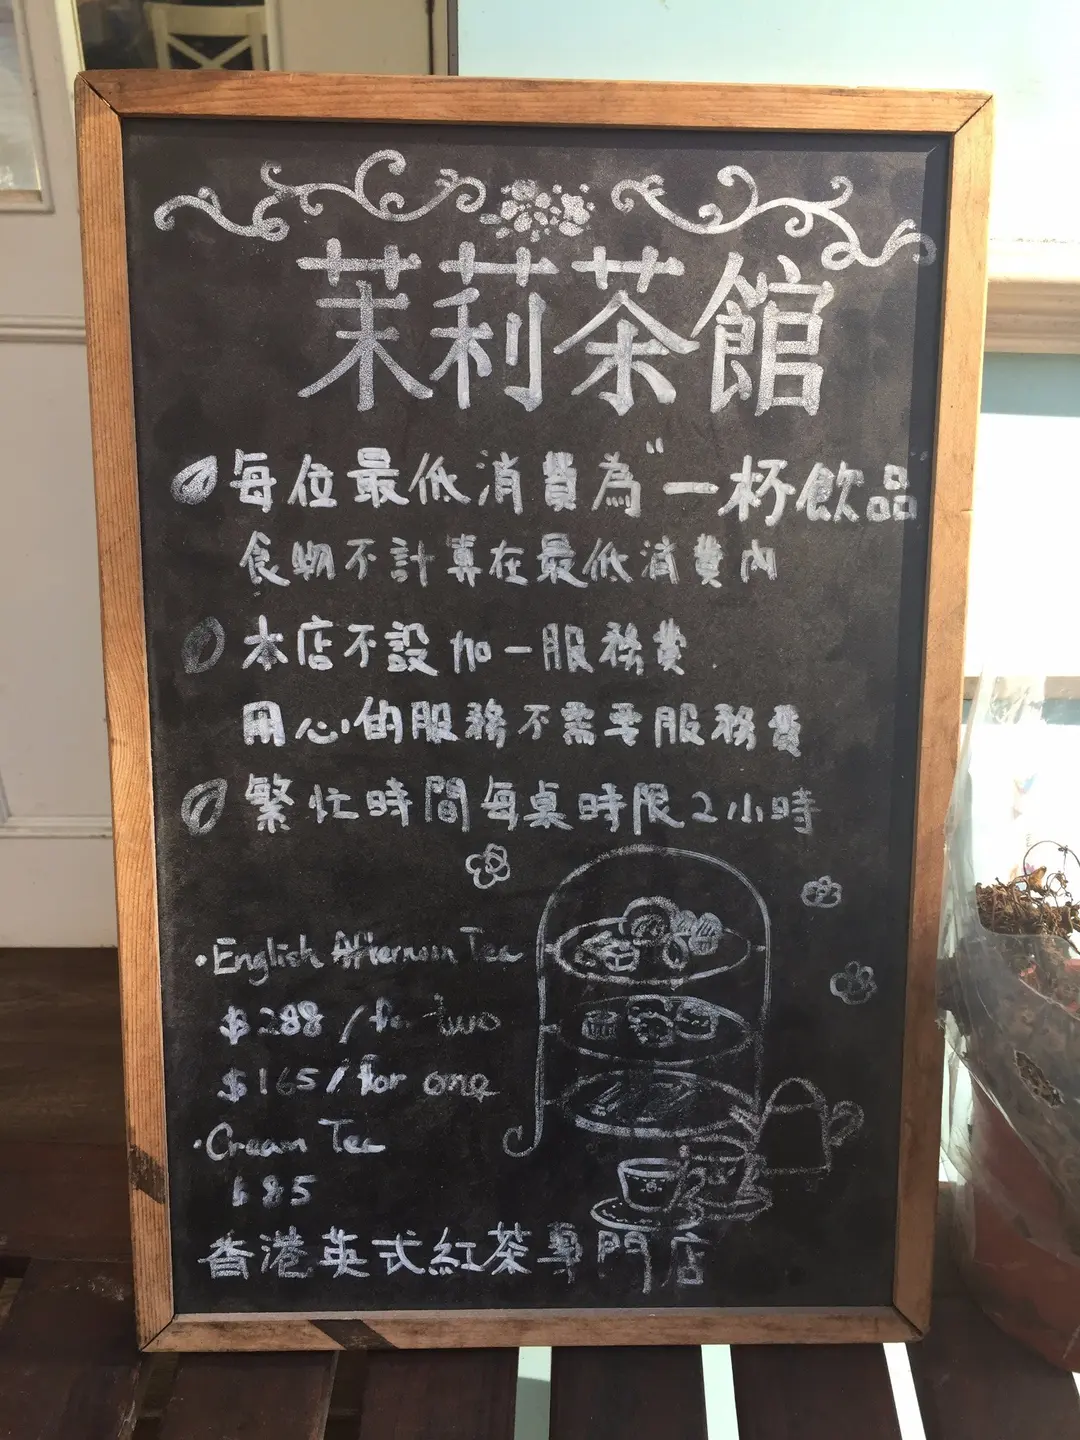 茉莉茶館
每位最低消費為“一杯飲品
食物不計算在最低消費內
本店不設加一服務費
用心的服務不需要服務費
繁忙時間每桌時限2小時
·English Afternoon Tea
$288/for two
$165/for one
·Cream Tea
$85
香港英式紅茶專門店